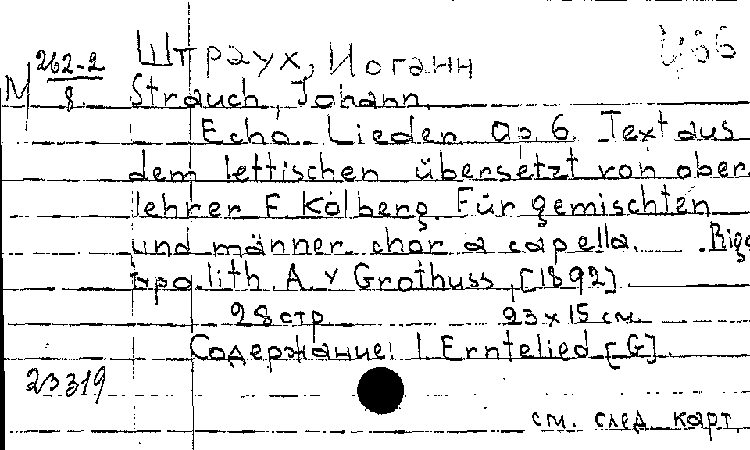 Штраух, Иоганн
M 262-2
8
Strauch, Johann.
Echo. Lieder Op. 6. Text aus
dem lettischen übersetzt von ober-
lehrer F. Kolberg. Für gemischten
und männer chor a capella. Riga
typo lith. A. v Grothuss, [1892]
28 стр 23 x 15 см.
Содержание: 1 Erntelied [G].
23319
см. след. карт.